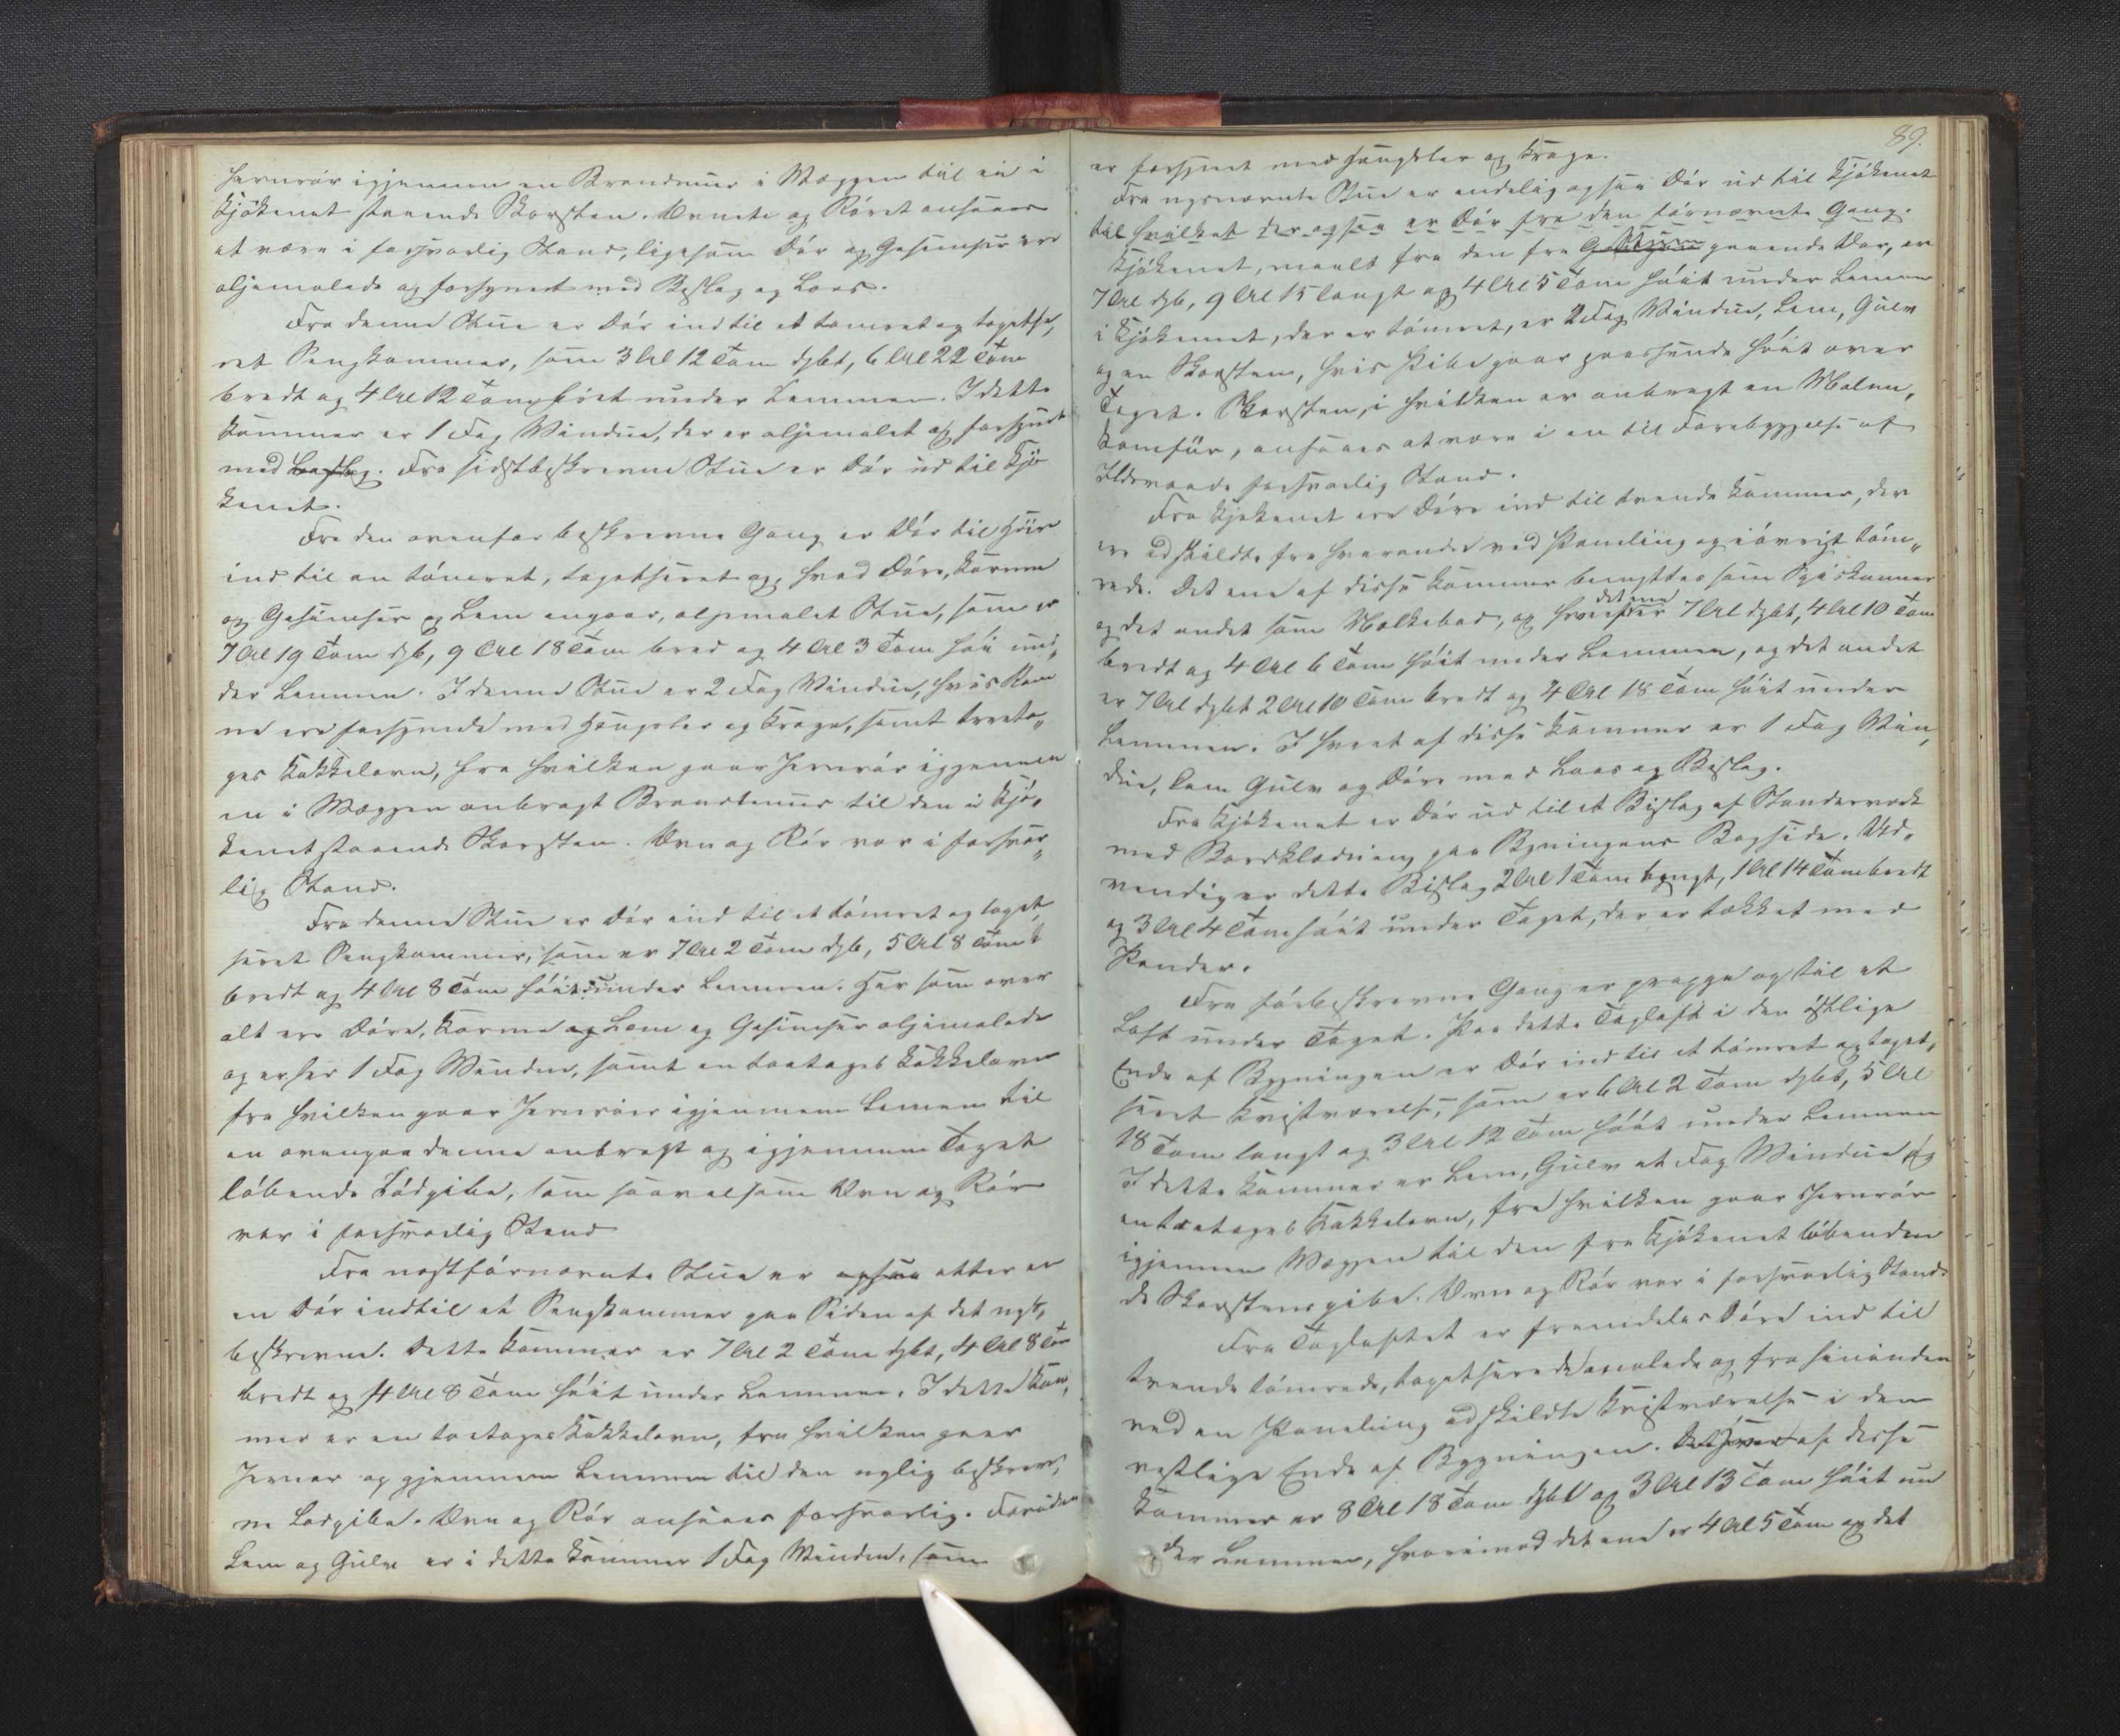 Jernrör igjennem en Brandmuur i Væggen til en i
Kjökenet staaende Skorsten. Ovnen og Röret ansaaes
at være i forsvarlig Stand, ligesom Dör og Gesimser ere
oljemalede og forsynet med Beslag og Laas.
Fra denne Stue er Dör ind til et tömret og tapetse,
ret Sengkammer, som 3 Al 12 Tom dybt, 6 Al 22 Tom
bredt og 4 Al 12 Tom höit under Lemmen. I dette
Kammer er 1 Fag Vindue, der er oljemalet og forsynet
med Beslag. Fra sidstbeskrevne Stue er Dör ud til Kjö
kenet.
Fra den ovenfor beskrevne Gang er Dör til Höire
ind til en tömret, tapetseret og, hvad Döre, Karme
og Gesimser og Lem angaar, oljemalet Stue, som er
7 Al 19 Tom dyb, 9 Al 18 Tom bred og 4 Al 3 Tom höi un,
der Lemmen. I denne Stue er 2 Fag Vindue, hvis Ram
me ere forsynede med Hængsler og Kroge, samt treeta,,
ges Kakkelovn, fra hvilken gaar Jernrör igjennem
en i Væggen anbragt Brandmuur til den i Kjö,
kenet staaende Skorsten. Ovn og Rör var i forsvar,,
lig Stand.
Fra denne Stue er Dör ind til et tömret og tapet,
seret Sengkammer, som er 7 Al 2 Tom dyb, 5 Al 8 Tom
bredt og 4 Al 8 Tom höit under Lemmen. Her som over
alt ere Döre, Karme og Lem og Gesimser oljemalede
og er her 1 Fag Vindue, samt en toetages Kakkelovn
fra hvilken gaar Jernrör igjennem Lemmen til
en ovenpaa denne anbragt og igjennem Taget
löbende Lödpibe, som saavelsom Ovn og Rör
var i forsvarlig Stand
Fra nestförnævnte Stue er ogsaa atter er
en Dör ind til et Sengkammer paa Siden af det nys,
beskrevne. Dette Kammer er 7 Al 2 Tom dybt, 4 Al 8 Tom
bredt og 4 Al 8 Tom höit under Lemmen. I dette Kam,
mer er en toetages Kakkelovn, fra hvilken gaar
Jernrör og gjennem Lemmen til den nylig beskrev,
ne Lodpibe. Ovn og Rör ansaaes forsvarlig. Foruden
Lem og Gulv er i dette Kammer 1 Fag Vindue, som
89.
er forsynet med Hængsler og Kroge.
Fra nysnævnte Stue er endelig ogsaa Dör ud til Kjökenet
til hvilket der ogsaa er Dör fra den förnævnte Gang.
Kjökenet, maalt fra den fra Gangen gaaende Dör, er
7 Al dyb, 9 Al 15 langt og 4 Al 5 Tom höit under Lemmen
i Kjökenet, der er tömret, er 2 Fag Vindue, Lem, Gulv
og en Skorsten, hvis Pibe gaar passende höit over
Taget. Skorsten, i hvilken er anbragt en Malm,
komfür, ansaaes at være i en til Forebyggelse af
Ildsvaade forsvarlig Stand.
Fra Kjökenet ere Döre ind til tvende Kammer, der
ere adskildte fra hverandre ved Paneling og iövrigt töm,,
rede. Det ene af disse Kammer benyttes som Spiskammer
og det andet som Melkebod, og det ene er 7 Al dybt, 4 Al 10 Tom
bredt og 4 Al 6 Tom höit under Lemmen, og det andet
er 7 Al dybt 2 Al 10 Tom bredt og 4 Al 18 Tom höit under
Lemmen. I hvert af disse Kammer er 1 Fag Vin,
due, Lem Gulv og Döre med Laas og Beslag.
Fra Kjökenet er Dör ud til et Bislag af Standerværk
med Bordklædning paa Bygningens Bagside. Ud,
vendig er dette Bislag 2 Al 1 Tom langt, 1 Al 14 Tom bredt
og 3 Al 4 Tom höit under Taget, der er tækket med
Pander.
Fra förbeskrevne Gang er Trappe op til et
Loft under Taget. Paa dette Tagloft i den östlige
Ende af Bygningen er Dör ind til et tömret og tapet,
seret Kvistværelse, som er 6 Al 2 Tom dybt, 5 Al
18 Tom langt og 3 Al 12 Tom höit under Lemmen
I dette Kammer er Lem, Gulv et Fag Vindue og
en toetages Kakkelovn, fra hvilken gaar Jernrör
igjennem Væggen til den fra Kjökenet löbenden
de Skorstenspibe. Ovn og Rör var i forsvarlig Stand
Fra Tagloftet er fremdeles Döre ind til
tvende tömrede, tapetserede, malede og fra hinanden
ved en Paneling adskildte Kvistværelser i den
vestlige Ende af Bygningen. af disse
Kammer er 8 Al 18 Tom dybt og 3 Al 13 Tom höit un
der Lemmen, hvorimod det ene er 4 Al 5 Tom og det